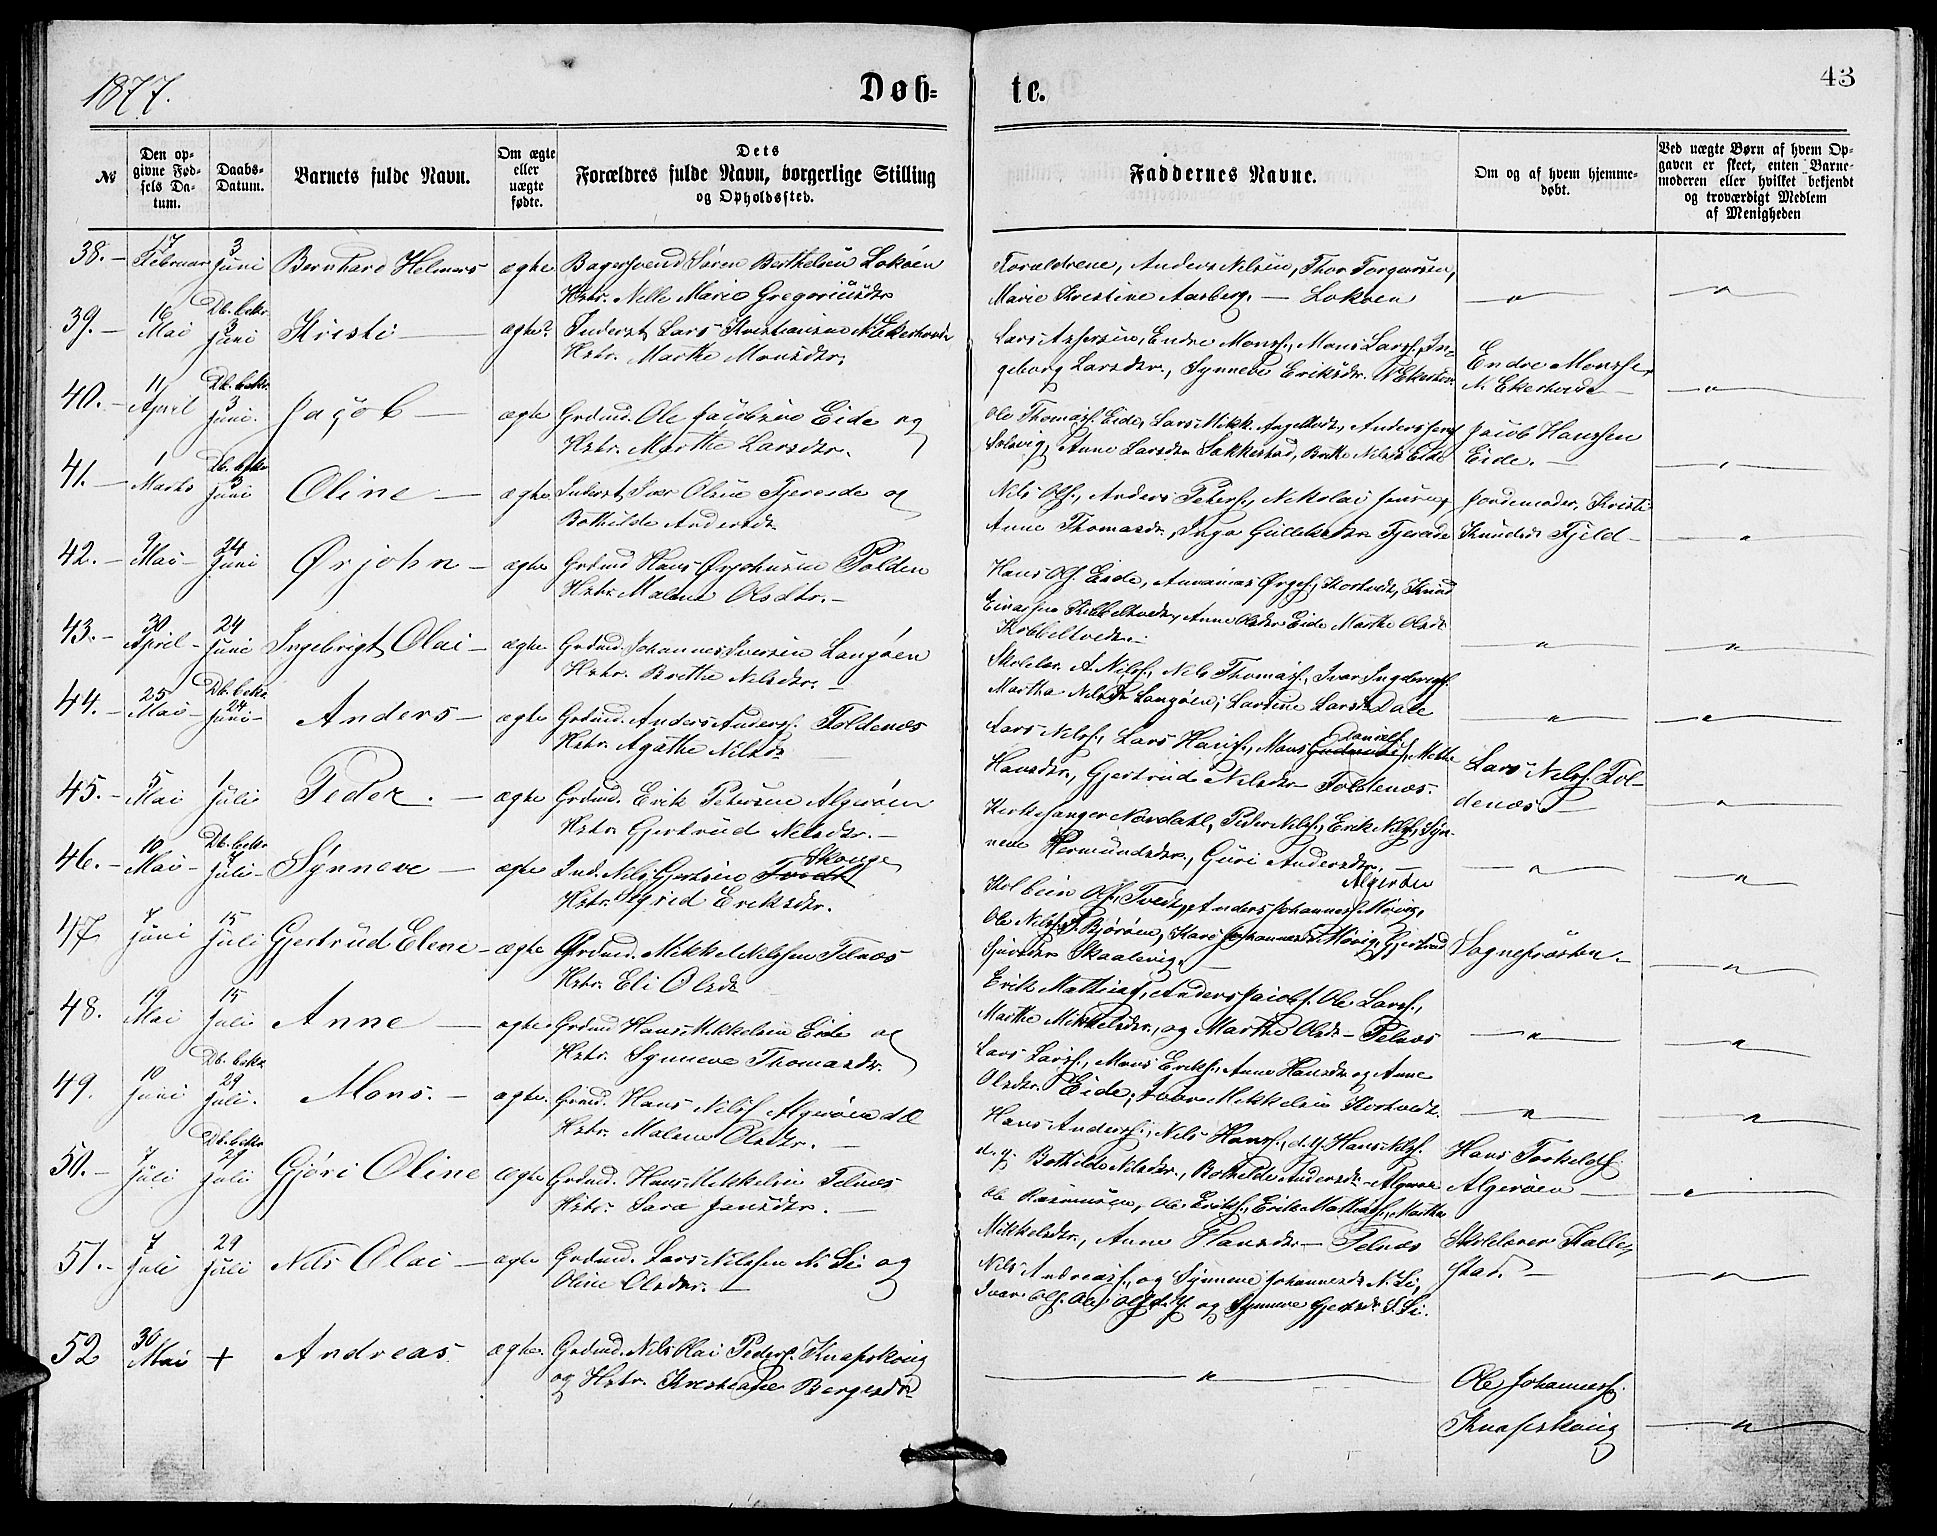 1877.
Døb=
te.
43
№
Den op-
givne Fød-
sels Da-
tum.
Daabs-
Datum.
Barnets fulde Navn.
Om ægte
eller
uægte
fødte.
Dets
Forældres fulde Navn, borgerlige Stilling
og Opholdssted.
Faddernes Navne.
Om og af hvem hjemme-
døbt.
Ved uægte Børn af hvem Op-
gaven er skeet, enten Barne-
moderen eller hvilket bekjendt
og troværdigt Medlem
af Menigheden
38. 17 Februar 3 Juni Bernhard Helmers ægte Bagersvend Søren Berthelsen Lokøen
Hstr. Nelle Marie Gregoriusdtr
Forældrene, Anders Nilsen, Thor Torgersen,
Marie Kristine Aasberg, — Lokøen
39. 16 Mai Db. bekr. 3 Juni Kristi ægte Inderst Lars Kristiansen N. Ekerhovde
Hstr. Marthe Monsdtr.
Endre Monss., Mons Larss., In-
geborg Larsdtr., Synneve Eriksdtr. N. Ekerhovde
Endre Monssen
N. Ekerhovde
40. 11 April Db. bekr. 3 Juni. Jacob ægte Grdmd. Ole Jacobsen Eide og
Hstr. Marthe Larsdtr.
Ole Thomass. Eide, Lars Mikk.
Solsvig, Anne Larsdtr Sekkestad, Brite Nilsd. Eide
Jacob Hanssen
Eide.
41. 1 Marts Db. bekr. 3 Juni Oline ægte Inderst Iver Olsen Tjereide og
Bothilde Andersdtr
Nils Ols., Anders Peters., Nikolai
Anne Thomasdr., Inga
Jordemoder, Kristi
Knudsdr Fjeld
42. 9 Mai 24 Juni Ørjohn ægte Grdmd Hans Ørjohnsen Polden
Hstr. Malene Olsdtr.
Hans Ols. Eide, Knud
Anne Olsdtr Eide Marthe Olsdtr
Kobbeltvedt
43. 30 April 24 Juni Ingebrigt Olai ægte Grdmd. Johannes Iversen Langøen
Hstr. Brithe Nilsdtr.
Skolelær. A Nilss., Nils Thomass., Ivar Ingebrigts.
Martha Nilsdr Langøen, Larsine Larsd. Dale
44. 25 Mai Db. bekr. 24 Juni Anders ægte Grdmd. Anders Anderss. Toldenæs
Hstr. Agathe Nilsdr
Lars Nilss., Lars Hanss., Mons Daniels. Mette
Hansdtr., Gjertrud Nilsdtr Toldenæs.
Lars Nilss. Tol-
denæs
45. 5 Mai 1 Juli Peder. ægte Grdmd. Erik Petersen Algerøen
Hstr. Gjertrud Nilsdtr.
Kirkesanger Nordahl, Peder Nilss., Erik Nilss., Syn-
neve Hermundsdtr., Guri Andersdtr.,
Algerøen
46. 10 Mai Db. bekr. 1 Juli Synneve ægte Ind. Nils Gjertsen Skouge
Hstr. Sigrid Eriksdtr.
Kolbein Ols. Tvedt, Anders Johanness. Morvig,
Ole Nilss. Bjørøen, Kari Johannesd. Morvig, Gjertrud
Sjursdtr Skaalevig.
47 7 Juni 15 Juli Gjertrud Elene ægte Grdmd. Mikkel Nilssen Telnæs
Hstr. Eli Olsdtr
Sognepræsten
Erik Mathias., Anders Jacobs. Ole Larss.,
Marthe Mikkelsdtr., og Marthe Olsdr Telnæs
48. 19 Mai 15 Juli Anne ægte Grdmd Hans Mikkelsen Eide og
Hstr. Synneve Thomasdtr.
Lars Larss., Mons Eriks., Anne Hansdtr og Anne
Olsdtr. Eide, Ivar Mikkelsen
49. 10 Juni Db. bekr. 29 Juli. Mons. ægte. Grmd. Hans Nilss Algerøen d.Æ
Hstr. Malene Olsdtr.
Hans Anderss., Nils Hanss., d.y. Hans Nilss.
d.y. Bothilde Nilsdtr., Bothilde Andersdtr Algerøen
Hans Torkelds.
Algerøen
50. 7 Juli Db. bekr. 29 Juli Gjøri Oline ægte Grdmd. Hans Mikkelsen Telnæs
Hstr. Sara Jansdtr.
Ole Rasmussen, Ole Eriks., Erik Mathias., Martha
Mikkelsdtr., Anne Hansdtr Telnæs
Skolelærer Halle-
stad.
51. 7 Juli 29 Juli Nils Olai ægte Grdmd. Lars Nilssen N. Li og
Oline Olsdtr.
Nils Andreass., og Synneve Johannesdr N. Li,
Ivar Ols. Ole Ols d.Y. og Synneve Gjertsdr S. Li.
52 30 Mai + Andreas. ægte. Grdmd. Nils Olai Peders. Knapskoug
og Hstr. Kristiane Børgesdtr
Ole Johanness.
Knapskoug